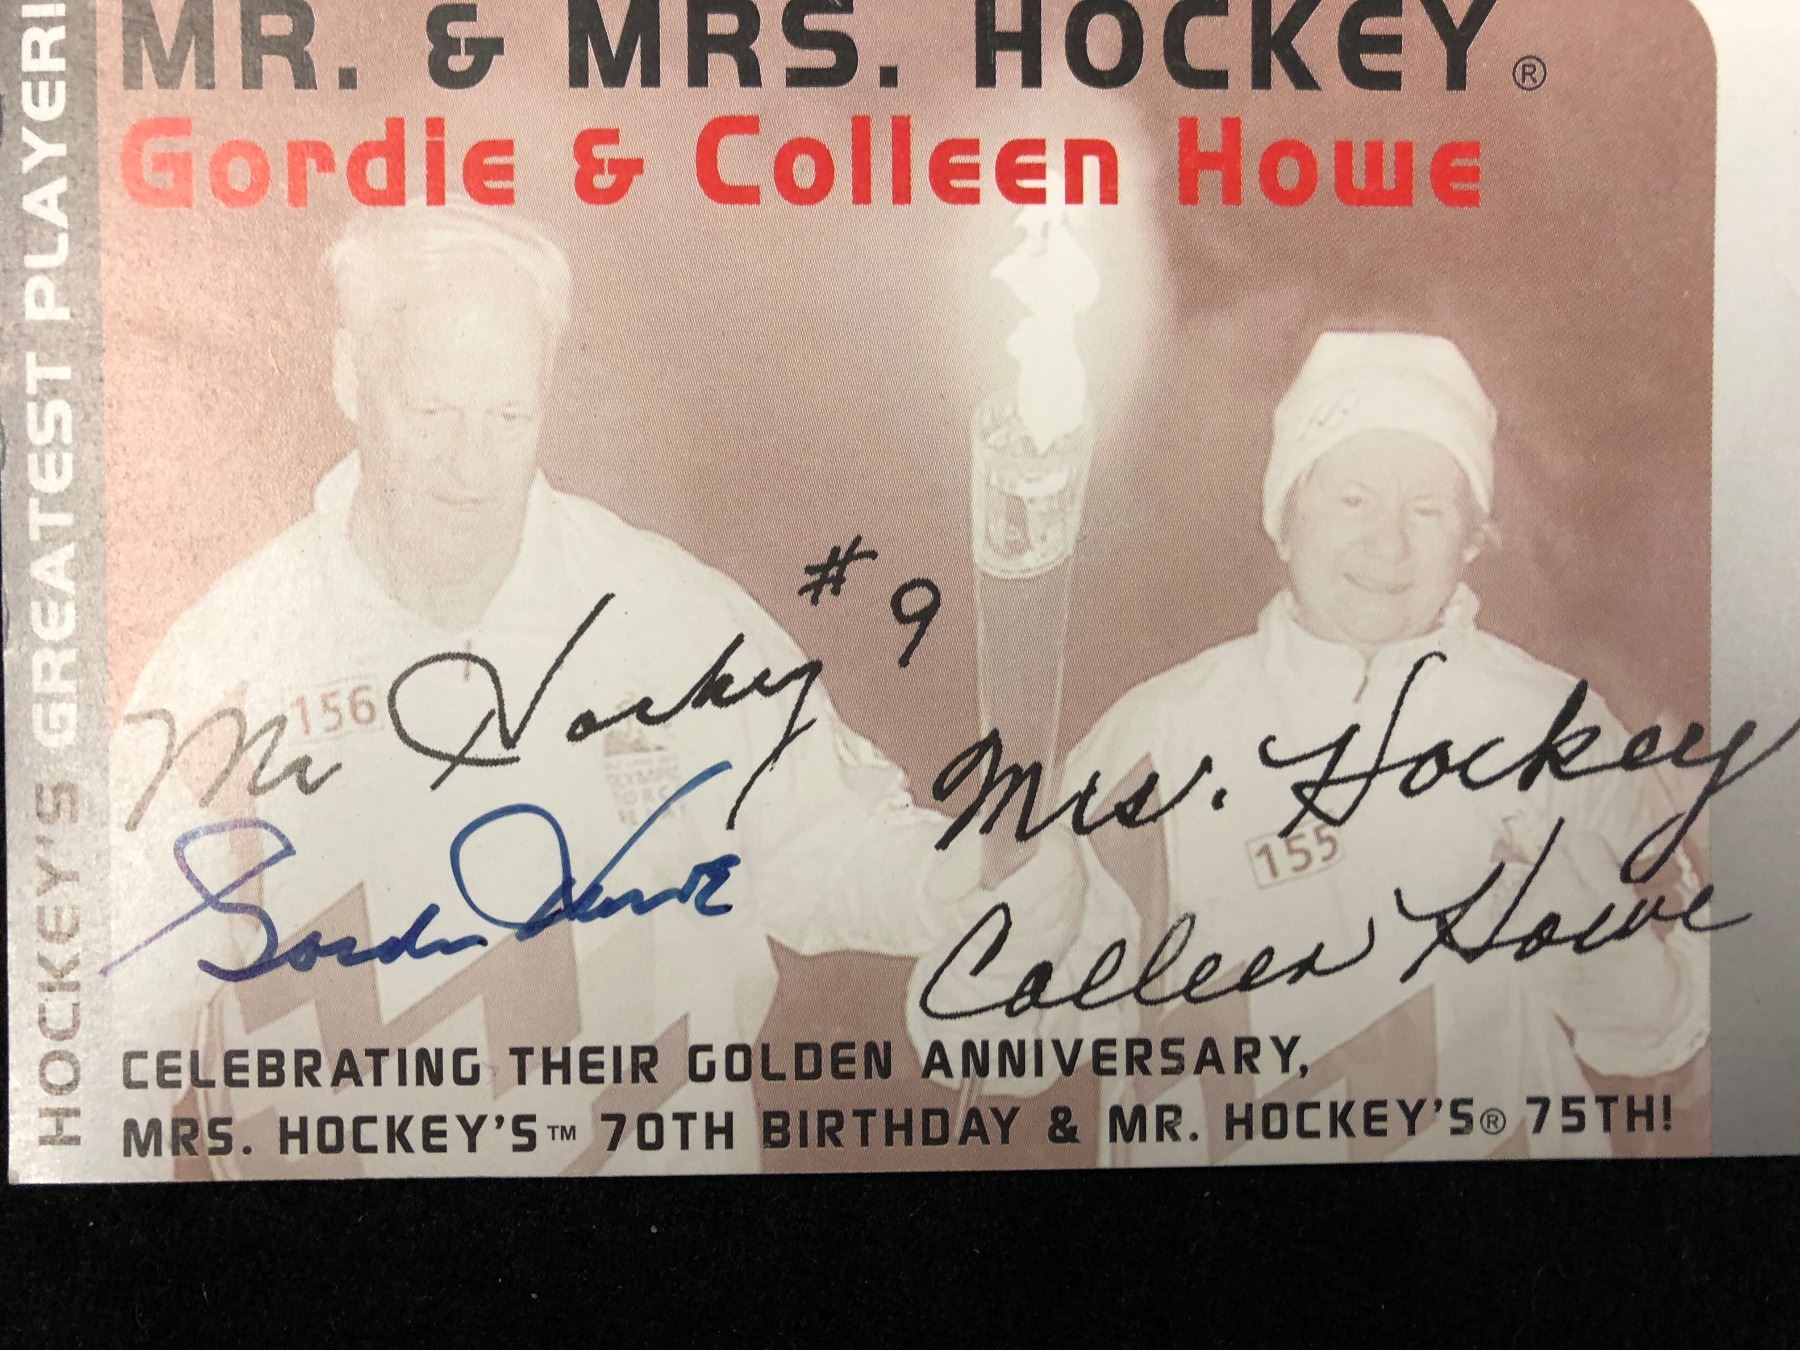 MR. & MRS. HOCKEY®
Gordie & Colleen Howe
HOCKEY'S GREATEST PLAYER
# 9
Mr Hockey
156
Mrs. Hockey
155
Gordie Howe
Colleen Howe
CELEBRATING THEIR GOLDEN ANNIVERSARY,
MRS. HOCKEY'S™ 70TH BIRTHDAY & MR. HOCKEY'S® 75TH!